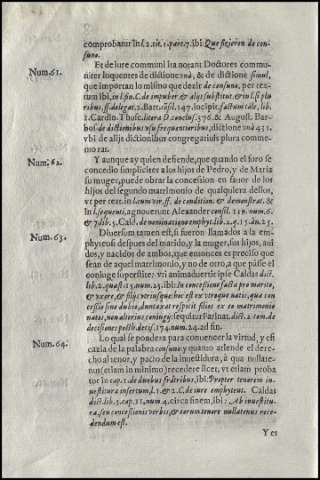 comprobatur in l. 2. tit. 1. part. 7. ibi Que fizieren de con-
suno.
Num. 61.
Et de iure communi ita notant Doctores commu-
niter loquentes de dictione vnà, & de dictione simul,
que importan lo mismo que dezir de consuno, per tex-
tum in l. fin. C. de impuber. & alijs substitut. & in l. si plu
ribus, ff. delegat. 2. Bart. consil. 147. incipit, factum tale, lib.
2. Cardin. Thusc. litera D. concluf. 376. & August. Bar-
bos. de dictionibus vsu frequentioribus, dictione vnà 432.
vbi de alijs dictionibus congregatiuis plura comme
morat.
Num. 62.
Y aunque ay quien defiende, que quando el foro se
concediò simpliciter a los hijos de Pedro, y de Maria
su muger, puede obrar la concession en fauor de los
hijos del segundo matrimonio de qualquiera dellos,
vt per text. in l. cum vir, ff. de condition. & demonstrat. &
in l. sequenti, agnouerunt Alexander consil. 119. num. 6.
& 7. lib. 5. Cald. de nominatione emphyt. lib. 2. q. 15. nu. 23.
Num. 63.
Diuersum tamen est, si fueron llamados a la em-
phyteusi despues del marido, y la muger, sus hijos, aui-
dos, y nacidos de ambos, que entonces es preciso que
sean de aquel matrimonio, y no de otro, a que passe el
coniuge superstite: vti animaduertit ipse Caldas dict.
lib. 2. quæst. 15. num. 23. ibi: In concessione facta pro marito,
& vxore, & filijs vtriusque hoc est ex vtroque natis, qua con
cessio sine dubio, dumtaxat respicit filios ex eo matrimonio
natos, non alterius coniugij, sequitur Parinac. dict. 2. tom. de
decisiones post lib. decis. 174. num. 24. ad fin.
Num. 64.
Lo qual se pondera para conuencer la virtud, y efi
cazia de la palabra consuno y quanto atiende el dere-
cho al tenor, y pacto de la inuestidura, à qua nullate-
nus (etiam in minimo) recedere licet, vt etiam proba
tur in cap. 1. de duobus fratribus, ibi: Propter tenorem in-
uestitura insertum, l. 1. & 2. C. de iure emphyteut. Caldas
dict. lib. 3. cap. 11. num. 4. circa finem, ibi: Ab inuestitu-
ra, seu concessionis verbis, & earum tenore nullatenus rece-
dendum est.
Y es